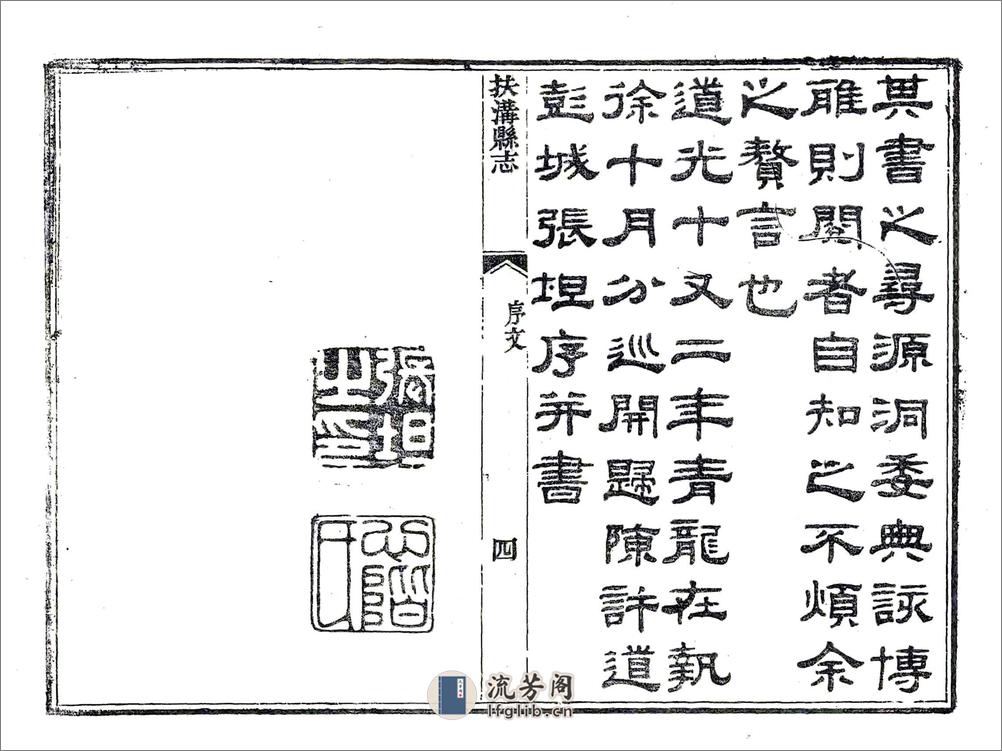 其書之尋源洞委典詠博
雅則閱者自知之不煩余
之贅言也
道光十又二年青龍在執
徐十月分巡開歸陳許道
彭城張坦序并書
扶溝縣志
序文
四
張坦之印
心階氏
流芳阁
lfglib.cn